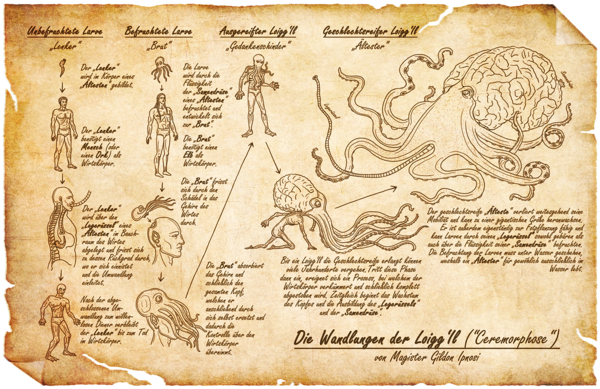 Unbefruchtete Larve
"Lenker"
Der "Lenker"
wird in Körper eines
"Ältesten" gebildet.
Der "Lenker"
benötigt einen
Mensch (oder
einen Ork) als
Wirtskörper.
Der "Lenker"
wird über den
"Legerüssel" eines
"Ältesten" in Bauch-
raum des Wirtes
abgelegt und frisst sich
zu dessen Rückgrad durch,
wo er sich einnistet
und die Umwandlung
einleitet.
Nach der abge-
schlossenen Um-
wandlung zum willen-
losen Diener verbleibt
der "Lenker" bis zum Tod
in Wirtskörper.
Befruchtete Larve
"Brut"
Die Larve
wird durch die
Flüssigkeit
der "Samendrüse"
eines "Ältesten"
befruchtet und
entwickelt sich
zur "Brut".
Die "Brut"
benötigt einen
Elb als
Wirtskörper.
Die "Brut" frisst
sich durch den
Schädel in das
Gehirn des
Wirtes
durch.
Die "Brut" absorbiert
das Gehirn und
schließlich den
gesamten Kopf,
welchen er
anschließend durch
sich selbst ersetzt und
dadurch die
Kontrolle über den
Wirtskörper
übernimmt.
Ausgereifter Loigg'Il
"Gedankenschinder"
Geschlechtsreifer Loigg'Il
"Ältester"
Bis ein Loigg'Il die Geschlechtsreife erlangt können
viele Jahrhunderte vergehen. Tritt diese Phase
dann ein, ereignet sich ein Prozess, bei welchem der
Wirtskörper verkümmert und schließlich komplett
abgestoßen wird. Zeitgleich beginnt das Wachstum
des Kopfes und die Ausbildung des "Legerüssels"
und der "Samendrüse".
Der geschlechtsreife "Älteste" verliert weitestgehend seine
Mobilität und kann zu einer gigantischen Größe heranwachsen.
Er ist außerdem eigenständig zur Fortpflanzung fähig und
kann Larven durch seinen "Legerüssel" sowohl gebären als
auch über die Flüssigkeit seiner "Samendrüse" befruchten.
Die Befruchtung der Larven muss unter Wasser geschehen,
weshalb ein "Ältester" für gewöhnlich ausschließlich in
Wasser lebt.
Die Wandlungen der Loigg'Il ("Ceremorphose")
von Magister Gildon Ipnosi